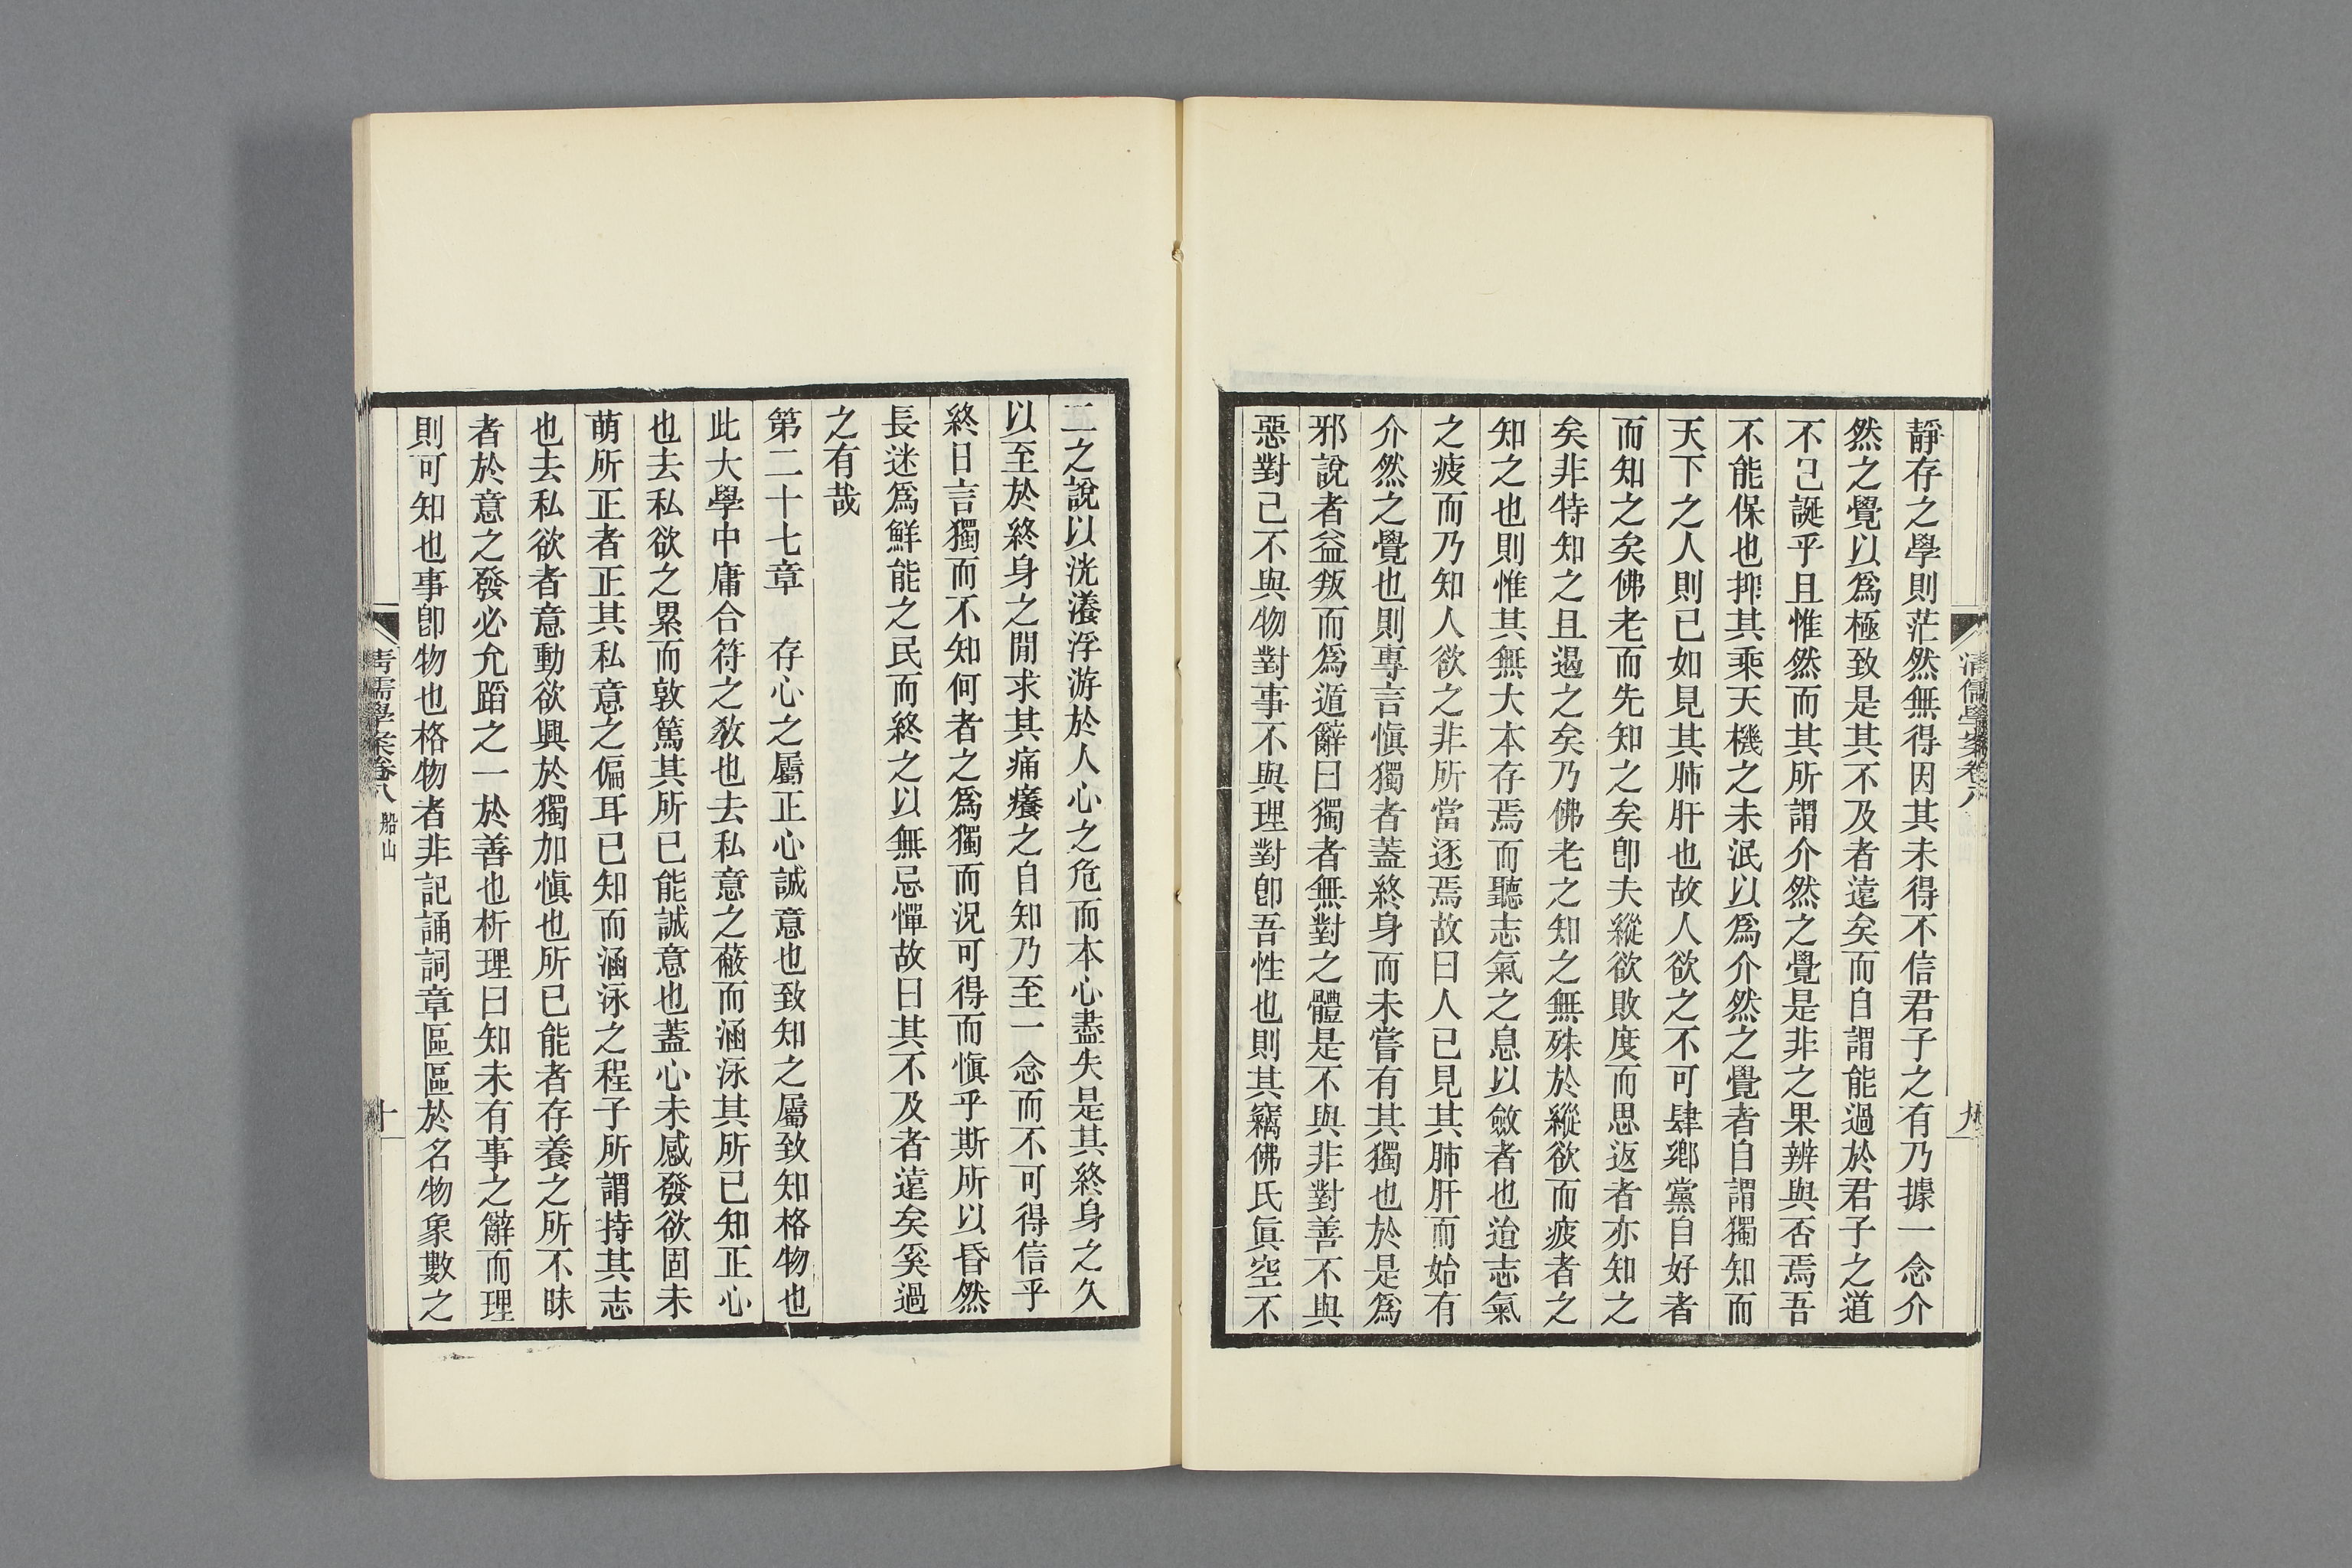 清儒學案卷八
九
靜存之學則茫然無得因其未得不信君子之有乃據一念介
然之覺以爲極致是其不及者遠矣而自謂能過於君子之道
不已誕乎且惟然而其所謂介然之覺是非之果辨與否焉吾
不能保也抑其乘天機之未泯以爲介然之覺者自謂獨知而
天下之人則已如見其肺肝也故人欲之不可肆鄉黨自好者
而知之矣佛老而先知之矣卽夫縱欲敗度而思返者亦知之
矣非特知之且遏之矣乃佛老之知之無殊於縱欲而疲者之
知之也則惟其無大本存焉而聽志氣之息以斂者也迨志氣
之疲而乃知人欲之非所當逐焉故曰人已見其肺肝而始有
介然之覺也則專言愼獨者蓋終身而未嘗有其獨也於是爲
邪說者益叛而爲遁辭曰獨者無對之體是不與非對善不與
惡對己不與物對事不與理對卽吾性也則其竊佛氏眞空不
二之說以洸瀁浮游於人心之危而本心盡失是其終身之久
以至於終身之閒求其痛癢之自知乃至一念而不可得信乎
終日言獨而不知何者之爲獨而況可得而愼乎斯所以昏然
長迷爲鮮能之民而終之以無忌憚故曰其不及者遠矣奚過
之有哉
第二十七章　存心之屬正心誠意也致知之屬致知格物也
此大學中庸合符之敎也去私意之蔽而涵泳其所已知正心
也去私欲之累而敦篤其所已能誠意也蓋心未感發欲固未
萌所正者正其私意之偏耳已知而涵泳之程子所謂持其志
也去私欲者意動欲興於獨加愼也所已能者存養之所不昧
者於意之發必允蹈之一於善也析理曰知未有事之辭而理
則可知也事卽物也格物者非記誦詞章區區於名物象數之
清儒學案卷八 船山
十